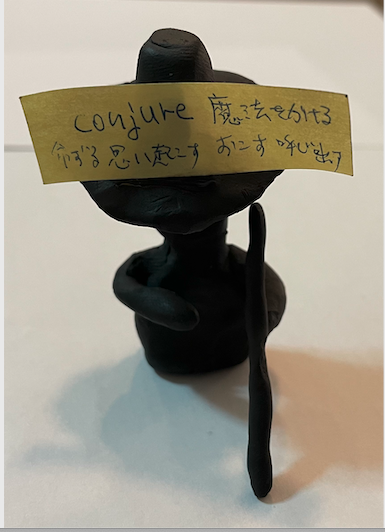 conjure 魔法をかける
命ずる 思い起こす おこす 呼び出す